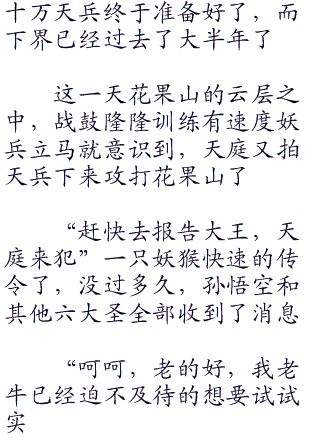 十万天兵终于准备好了，而
下界已经过去了大半年了
这一天花果山的云层之
中，战鼓隆隆训练有速度妖
兵立马就意识到，天庭又拍
天兵下来攻打花果山了
“赶快去报告大王，天
庭来犯”一只妖猴快速的传
令了，没过多久，孙悟空和
其他六大圣全部收到了消息
“呵呵，老的好，我老
牛已经迫不及待的想要试试
实